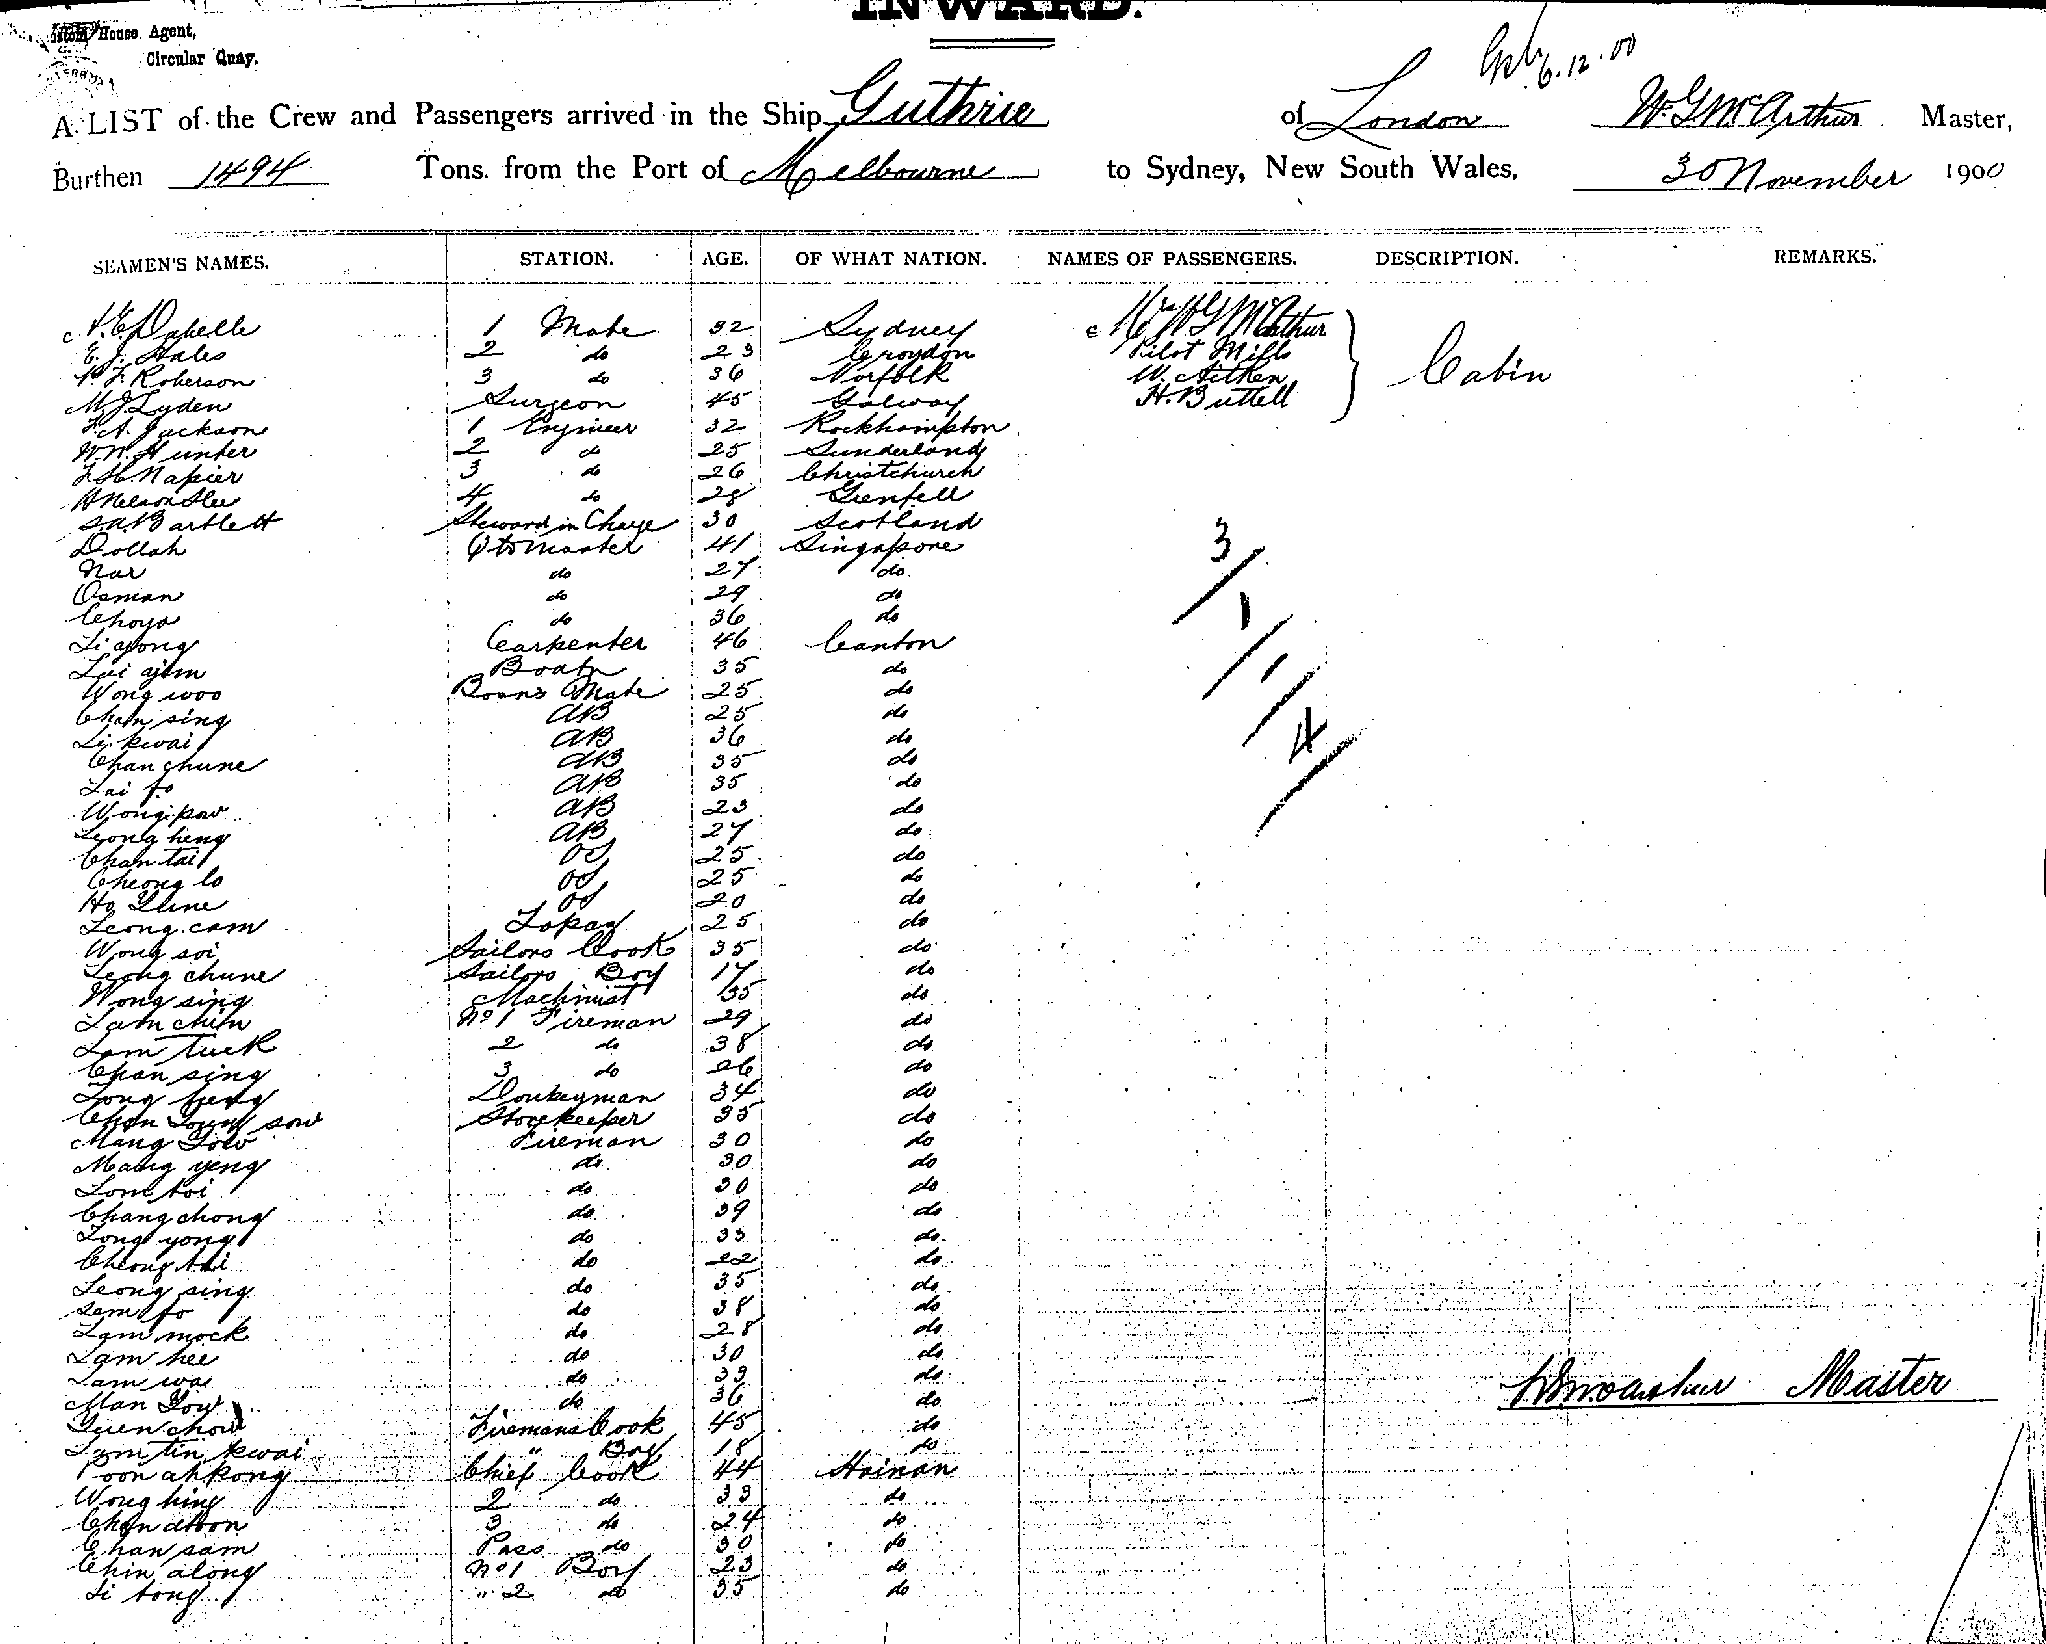 INWARD.
House Agent,
Circular Quay.
6.12.00
A LIST of the Crew and Passengers arrived in the Ship Guthrie of London W. G. McArthur Master,
Burthen 1494 Tons. from the Port of Melbourne to Sydney, New South Wales, 30 November 1900
SEAMEN'S NAMES. STATION. AGE. OF WHAT NATION. NAMES OF PASSENGERS. DESCRIPTION. REMARKS.
1 Mate 32 Sydney Mrs W G McArthur
E. J. Hales 2 do 23 Croydon Pilot Mills
Roberson 3 do 36 Norfolk W. Aitken Cabin
M. J. Lyden Surgeon 45 Galway H. Buttell
Jackson 1 Engineer 32 Rockhampton
W. W. Hunter 2 do 25 Sunderland
Napier 3 do 26 Christchurch
4 do 28 Grenfell
Bartlett Steward in Charge 30 Scotland
Dollah Qtr Master 41 Singapore
Nar do 27 do
Osman do 29 do
Choyo do 36 do
Li yong Carpenter 46 Canton
Lui yim Boatn 35 do
Wong woo Boxns Mate 25 do
Chan sing AB 25 do
Li kwai AB 36 do
Chan chune AB 35 do
Lai fo AB 35 do
Wong pao AB 23 do
Leong heng AB 27 do
Chan tai OS 25 do
Cheong lo OS 25 do
Ho Lune OS 20 do
Leong cam Topay 25 do
Wong soi Sailors Cook 35 do
Leong chune Sailors Boy 17 do
Wong sing Machinist 35 do
Lam chin No 1 Fireman 29 do
Lam tuck 2 do 38 do
Chan sing 3 do 26 do
Long Donkeyman 34 do
Chan sow Storekeeper 35 do
Mang Yow Fireman 30 do
Mang yeng do 30 do
Lom toi do 30 do
Chang chong do 39 do
Long yong do 33 do
Cheong tai do 22 do
Leong sing do 35 do
Sam fo do 38 do
Lam mock do 28 do
Lam hee do 30 do
Lam wa do 33 do
Man Yow do 36 do
Yuen chow Firemans Cook 45 do
Lam tin kwai " Boy 18 do
Poon ah kong Chief Cook 44 Hainan
Wong hing 2 do 33 do
Chan 3 do 24 do
Chan sam Pass do 30 do
Chin along No 1 Boy 23 do
Li tong " 2 do 35 do
3/
1/
1/
4/
W G McArthur Master